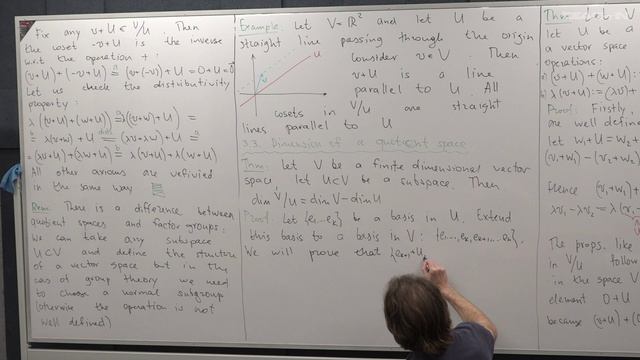 Fix any v+U ∈ V/U. Then
the coset -v+U is the inverse
w.r.t. the operation +:
(v+U)+(-v+U) = (v+(-v))+U = 0+U = 0
Let us check the distributivity
property:
λ((v+U)+(w+U)) = λ((v+w)+U) =
= λ(v+w)+U = (λv+λw)+U =
= (λv+U)+(λw+U) = λ(v+U)+λ(w+U)
All other axioms are verified
in the same way
Rem: There is a difference between
quotient spaces and factor groups:
we can take any subspace
U⊂V and define the structure
of a vector space but in the
case of group theory we need
to choose a normal subgroup
(otherwise the operation is not
well defined)
Example: Let V=ℝ² and let U be a
straight line passing through the origin
U
Consider v∈V. Then
v+U is a line
parallel to U. All
cosets in V/U are straight
lines parallel to U
3.3. Dimension of a quotient space
Thm: Let V be a finite dimensional vector
space, let U⊂V be a subspace. Then
dim V/U = dim V - dim U
Proof: Let {e₁...eₖ} be a basis in U. Extend
this basis to a basis in V: {e₁,...,eₖ,eₖ₊₁,...eₙ}.
We will prove that {eₖ₊₁+U,
Thm: Let V
let U be a
a vector space
operations:
a) (v+U)+(w+U):
b) λ(v+U):=(λv)+
Proof: Firstly,
are well defined
let w₁+U=w₂+
(v₁+w₁)-(v₂+w₂)
Hence (v₁+w₁)+
λv₁-λv₂=λ(v₁
The props. like
in V/U follow
in the space V
element 0+U
because (v+U)+(0